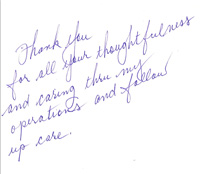 Thank you
for all your thoughtfulness
and caring thru my
operations and follow
up care.